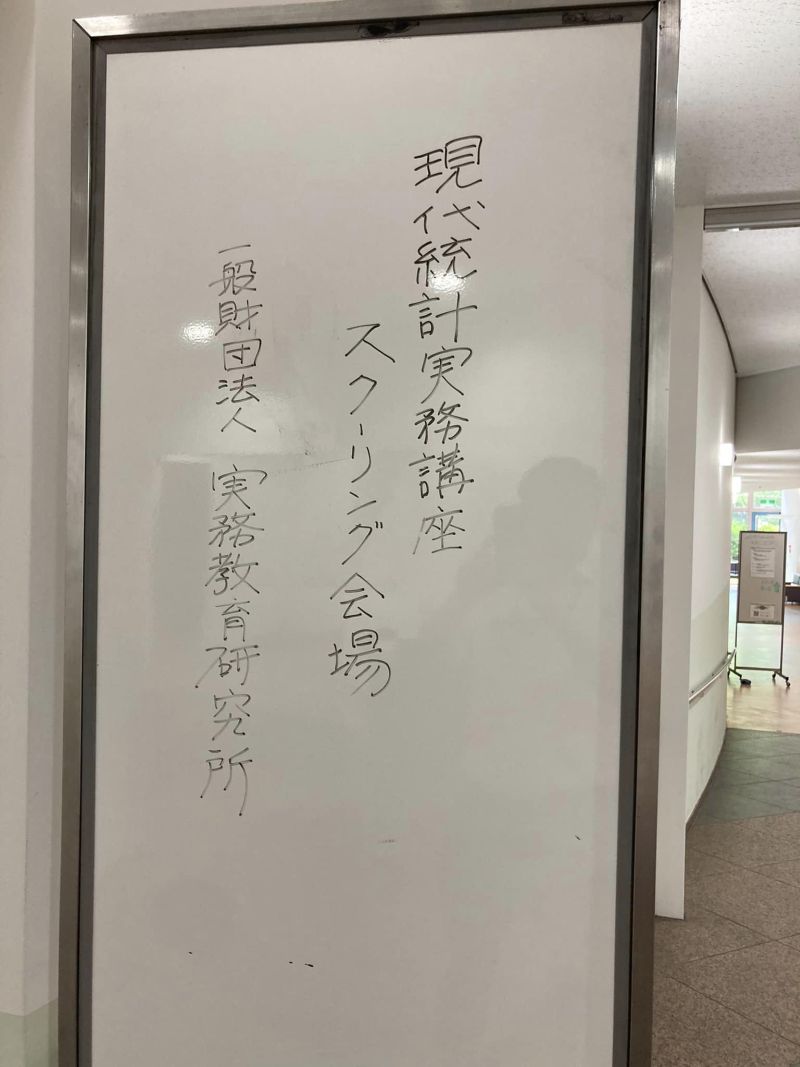 現代統計実務講座
スクーリング会場
一般財団法人 実務教育研究所